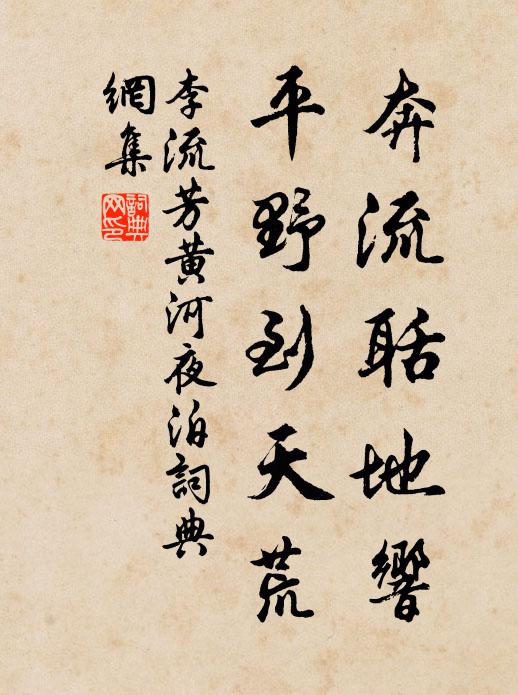 奔流聒地響
平野到天荒
李流芳黄河夜泊詞典
網集
詞典網印